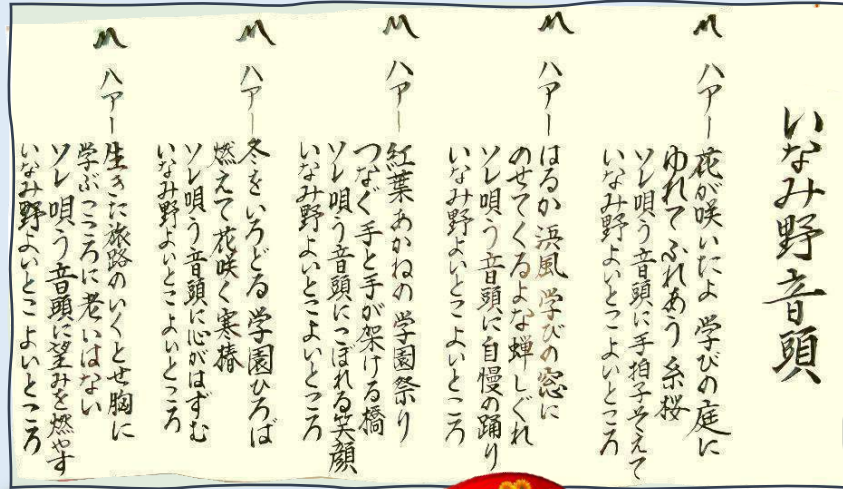 いなみ野音頭
〽 ハアー
花が咲いたよ 学びの庭に
ゆれて ふれあう 糸桜
ソレ唄う音頭に手拍子そえて
いなみ野よいとこ よいところ
〽 ハアー
はるか浜風 学びの窓に
のせてくるよな蝉しぐれ
ソレ唄う音頭に自慢の踊り
いなみ野よいとこ よいところ
〽 ハアー
紅葉あかねの学園祭り
つなぐ手と手が架ける橋
ソレ唄う音頭にこぼれる笑顔
いなみ野よいとこ よいところ
〽 ハアー
冬をいろどる 学園ひろば
燃えて花咲く寒椿
ソレ唄う音頭に心がはずむ
いなみ野よいとこ よいところ
〽 ハアー
生きた旅路のいくとせ胸に
学ぶこころに老いはない
ソレ唄う音頭に望みを燃やす
いなみ野よいとこ よいところ